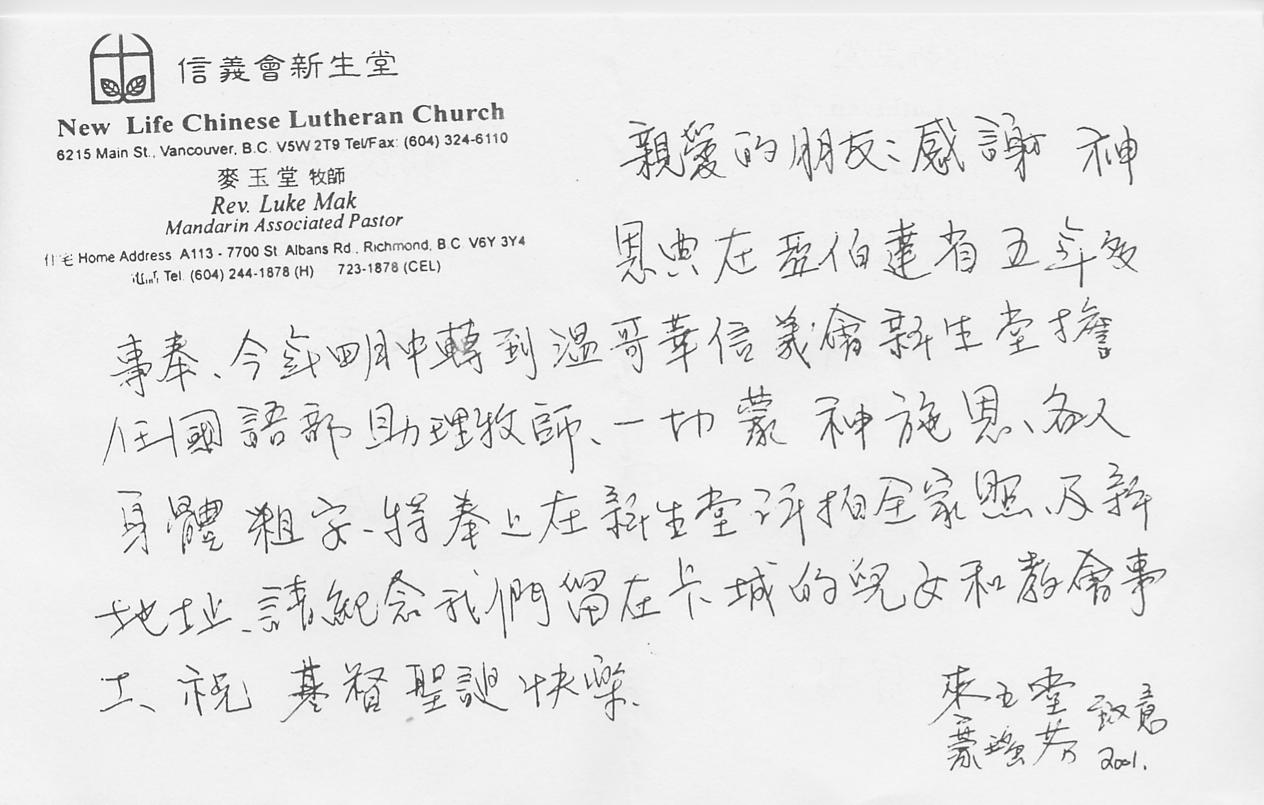 信義會新生堂
New Life Chinese Lutheran Church
6215 Main St., Vancouver, B.C. V5W 2T9 Tel/Fax: (604) 324-6110
麥玉堂 牧師
Rev. Luke Mak
Mandarin Associated Pastor
住宅 Home Address A113 - 7700 St Albans Rd., Richmond, B.C. V6Y 3Y4
Tel. (604) 244-1878 (H) 723-1878 (CEL)
親愛的朋友:感謝 神
恩典在亞伯達省五年多
事奉、今年四月中轉到溫哥華信義會新生堂擔
任國語部助理牧師、一切蒙 神施恩、各人
身體粗安、特奉上在新生堂所拍全家照、及新
地址、請紀念我們留在卡城的兒女和教會事
工、祝 基督聖誕快樂.
麥玉堂
致意
2001.